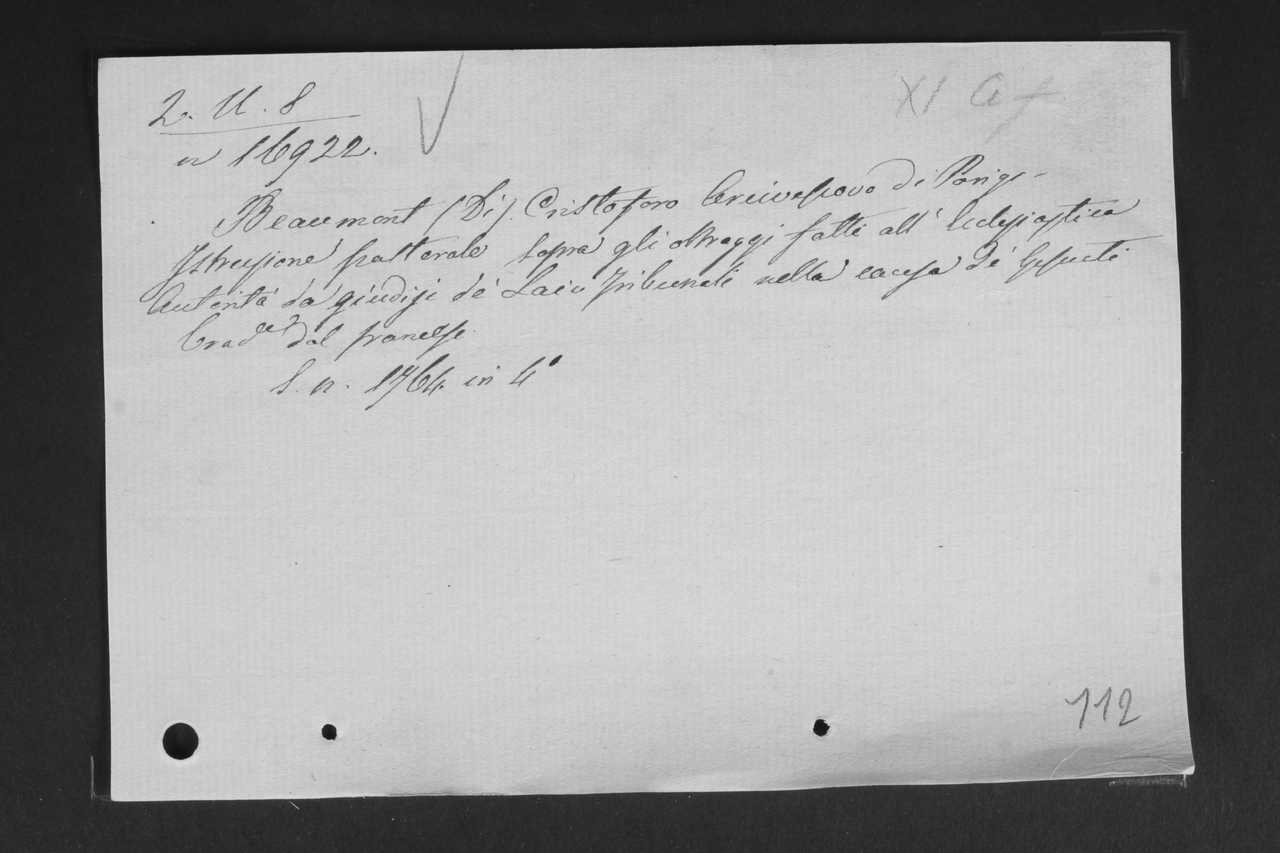 2. U. 8
n 16922.
Beaumont (Di) Cristoforo Arcivescovo di Parigi-
Istruzione pastorale sopra gli oltraggi fatti all' Ecclesiastica
Autorità da' giudizi de' Laici Tribunali nella causa de' Gesuiti
Trad.e dal francese
S. n. 1764. in 4°
112